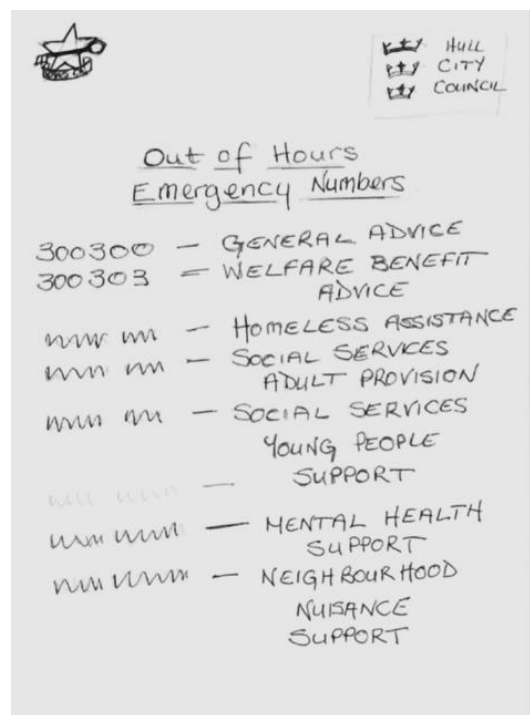 HULL
CITY
COUNCIL
Out of Hours
Emergency Numbers
300300 — GENERAL ADVICE
300303 = WELFARE BENEFIT
ADVICE
— HOMELESS ASSISTANCE
— SOCIAL SERVICES
ADULT PROVISION
— SOCIAL SERVICES
YOUNG PEOPLE
SUPPORT
—
— MENTAL HEALTH
SUPPORT
— NEIGHBOURHOOD
NUISANCE
SUPPORT